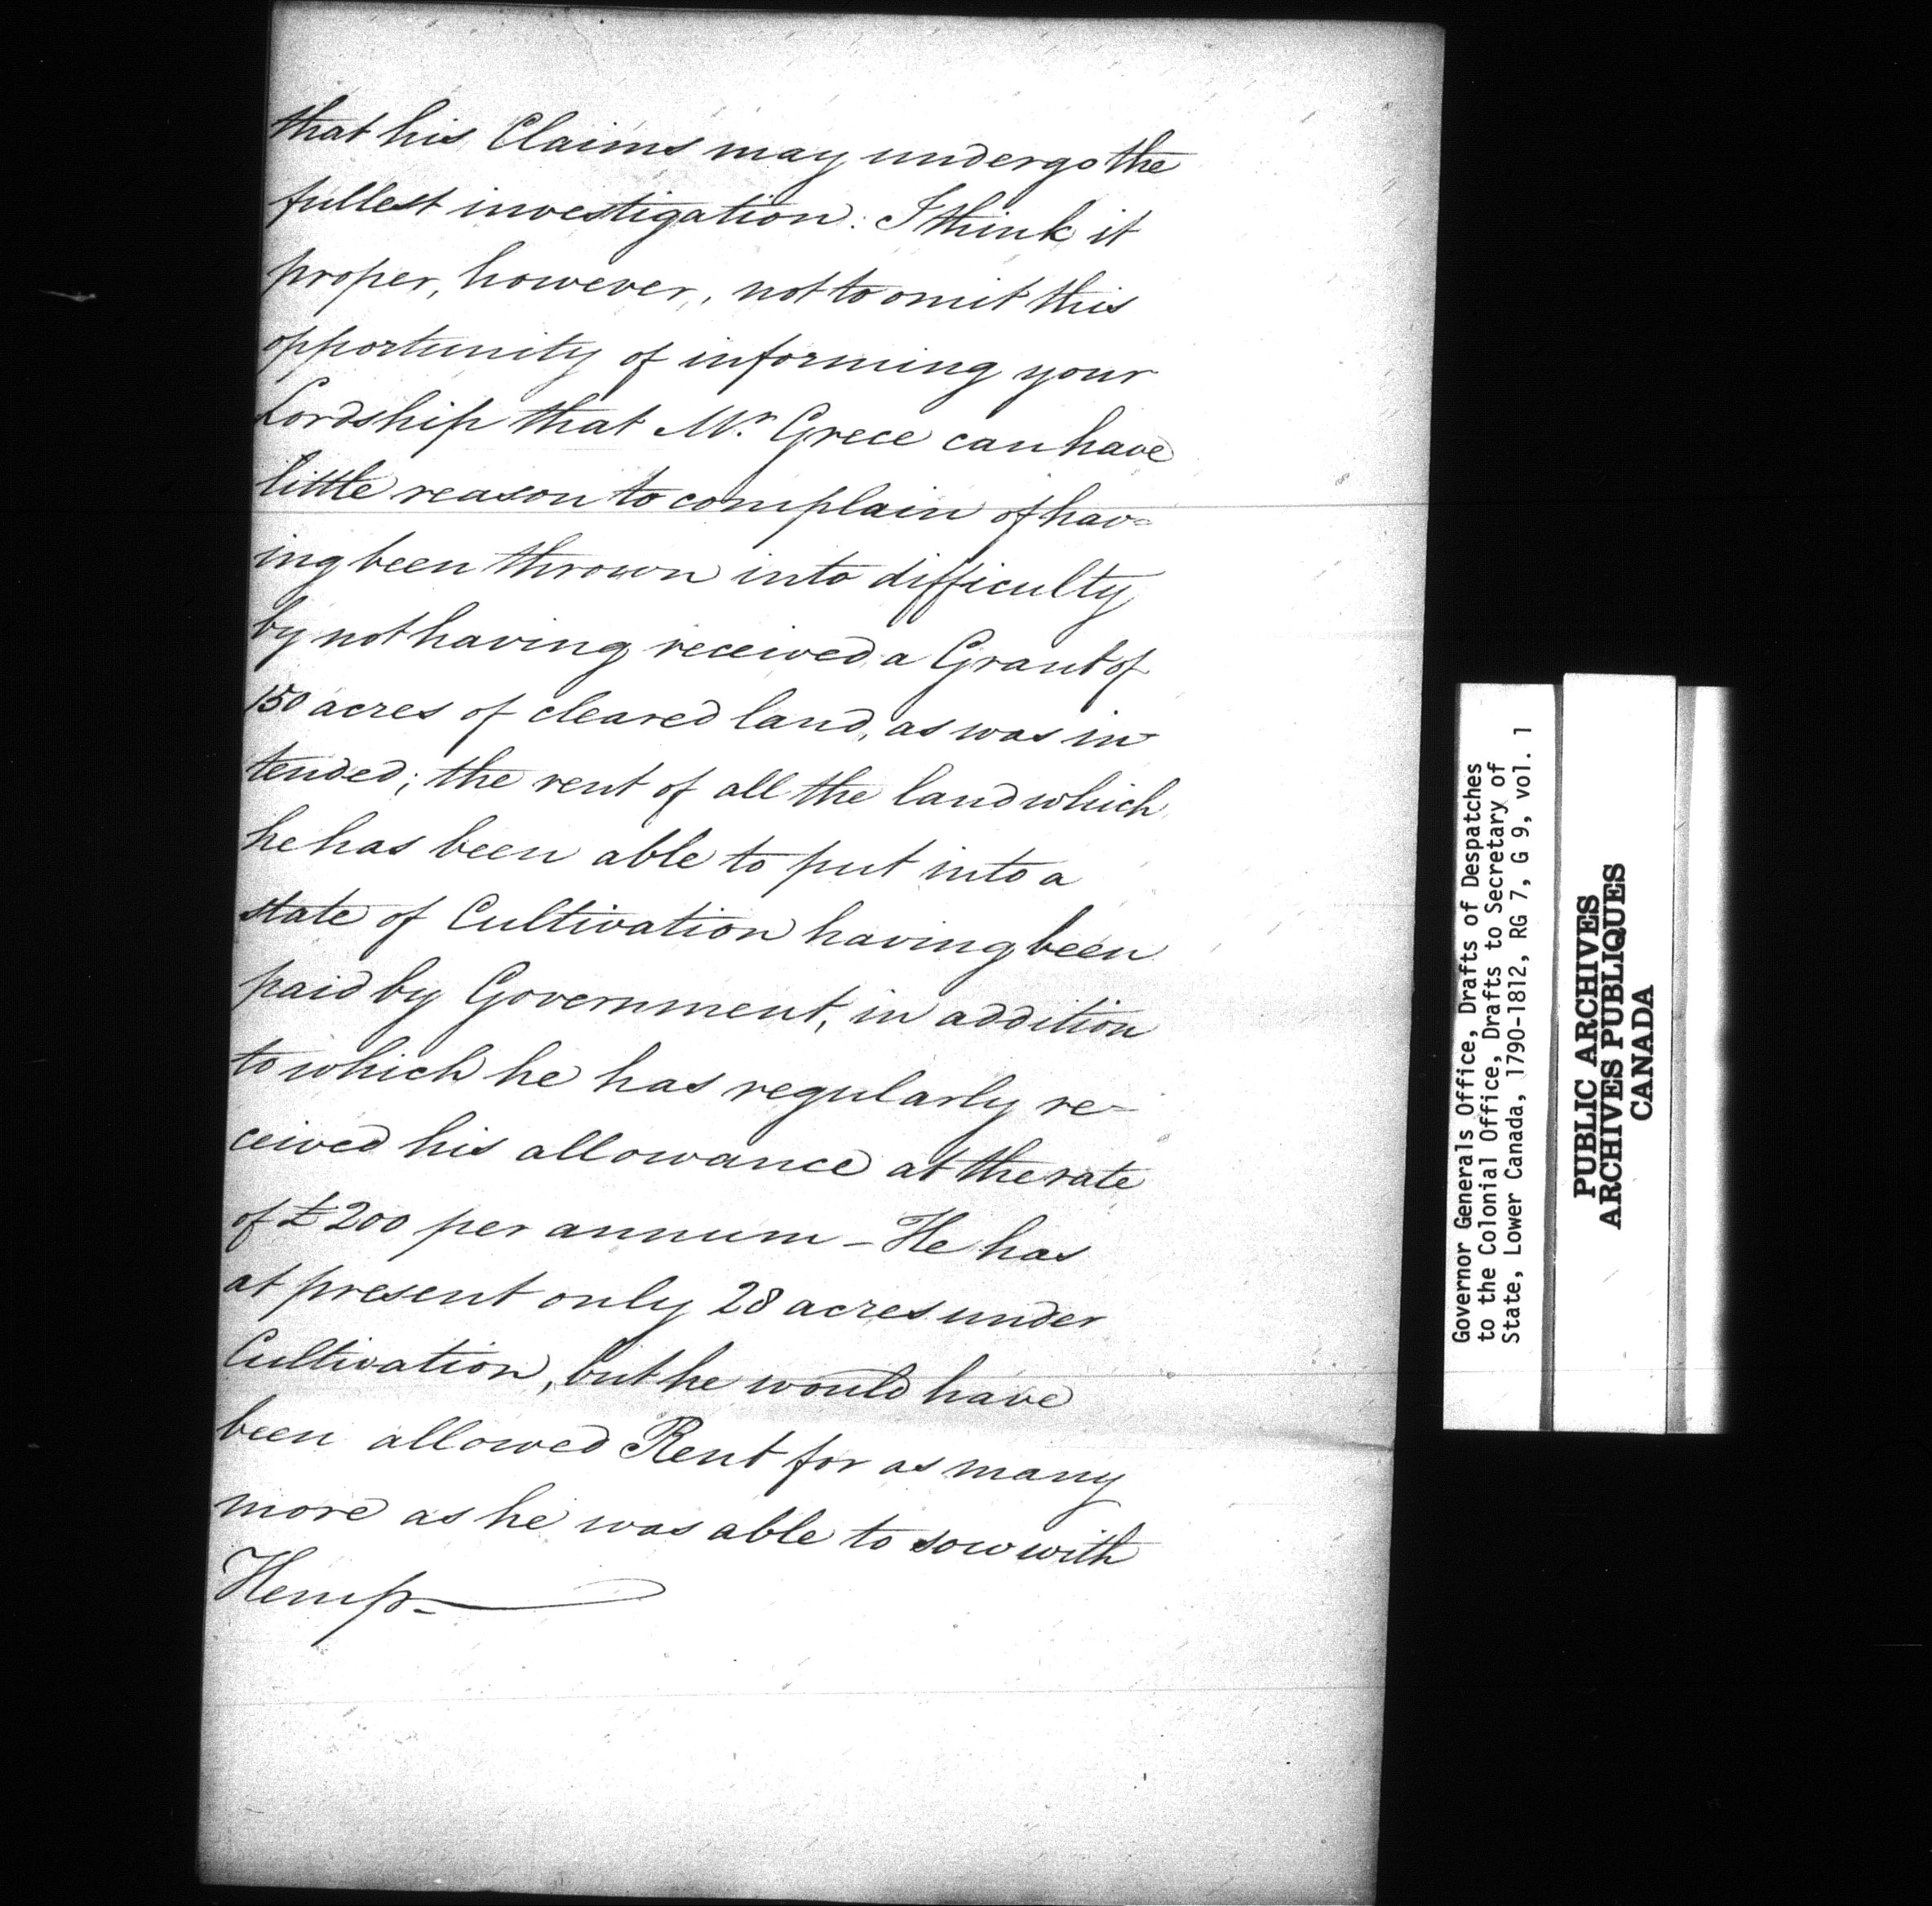 that his Claims may undergo the
fullest investigation. I think it
proper, however, not to omit this
opportunity of informing your
Lordship that Mr. Grece can have
little reason to complain of hav=
ing been thrown into difficulty
by not having received a Grant of
150 acres of cleared land, as was in-
tended; the rent of all the land which
he has been able to put into a
state of Cultivation having been
paid by Government, in addition
to which he has regularly re-
ceived his allowance at the rate
of £200 per annum – He has
at present only 28 acres under
Cultivation, but he would have
been allowed Rent for as many
more as he was able to sow with
Hemp.
Governor Generals Office, Drafts of Despatches
to the Colonial Office, Drafts to Secretary of
State, Lower Canada, 1790-1812, RG 7, G 9, vol. 1
PUBLIC ARCHIVES
ARCHIVES PUBLIQUES
CANADA